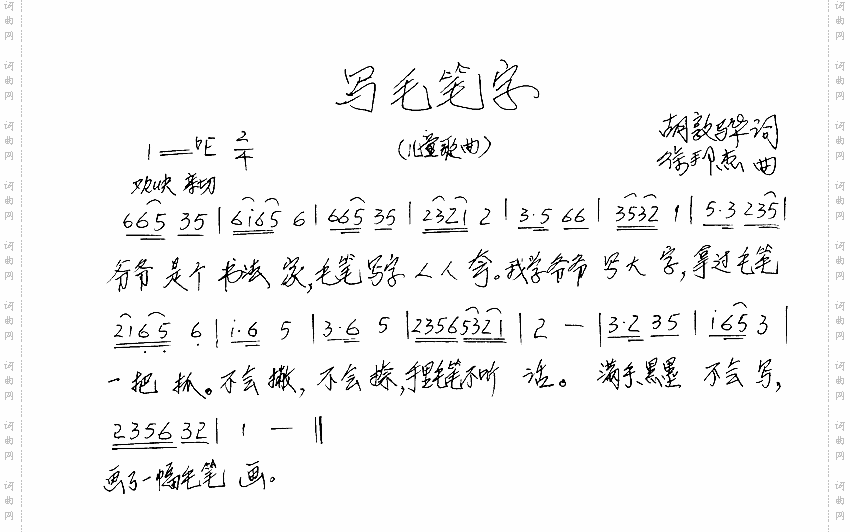 写毛笔字
胡敦骅词
1=♭E 2/4 (儿童歌曲) 徐邦杰曲
欢快 亲切
665 35 | 6i65 6 | 665 35 | 2321 2 | 3·5 66 | 3532 1 | 5·3 235 |
爷爷是个书法家,毛笔写字人人夸。我学爷爷写大字,拿过毛笔
2165 6 | i·6 5 | 3·6 5 | 23565321 | 2 — | 3·2 35 | i65 3 |
一把抓。不会撇,不会捺,手里毛笔不听话。满手黑墨不会写,
235632 | 1 — ‖
画了一幅毛笔画。
词曲网